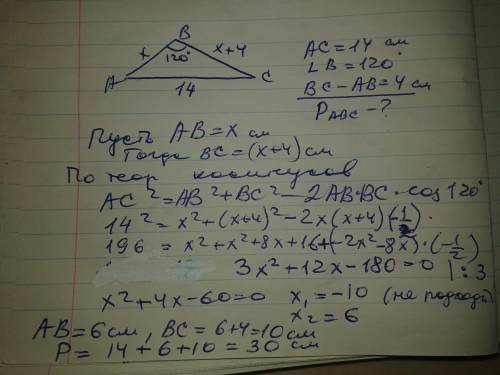 B
x
x+4
120°
A
C
14
AC=14 см
∠B=120°
BC-AB=4 см
P ABC -?
Пусть AB=x см
Тогда BC=(x+4) см
По теор косинусов
AC²=AB²+BC²-2AB·BC·cos120°
14²=x²+(x+4)²-2x(x+4)(-1/2).
196=x²+x²+8x+16+(-2x²-8x)·(-1/2)
3x²+12x-180=0 |:3
x²+4x-60=0 x₁=-10 (не подходи)
x₂=6
AB=6см, BC=6+4=10см
P=14+6+10=30 см